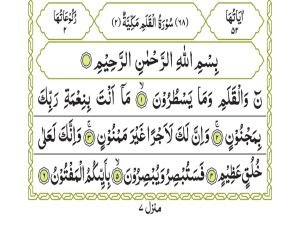 اٰيَاتُهَا ٥٢ (٦٨) سُوْرَةُ الْقَلَمِ مَكِّيَّةٌ (٢) رُكُوْعَاتُهَا ٢
بِسْمِ اللّٰهِ الرَّحْمٰنِ الرَّحِيْمِ
نٓ وَالْقَلَمِ وَمَا يَسْطُرُوْنَ ۙ‏﴿۱﴾ مَاۤ اَنْتَ بِنِعْمَةِ رَبِّكَ
بِمَجْنُوْنٍ ۚ‏﴿۲﴾ وَاِنَّ لَكَ لَاَجْرًا غَيْرَ مَمْنُوْنٍ ۚ‏﴿۳﴾ وَاِنَّكَ لَعَلٰى
خُلُقٍ عَظِيْمٍ ‏﴿۴﴾ فَسَتُبْصِرُ وَيُبْصِرُوْنَ ۙ‏﴿۵﴾ بِاَيِّكُمُ الْمَفْتُوْنُ ‏﴿۶﴾
منزل ٧